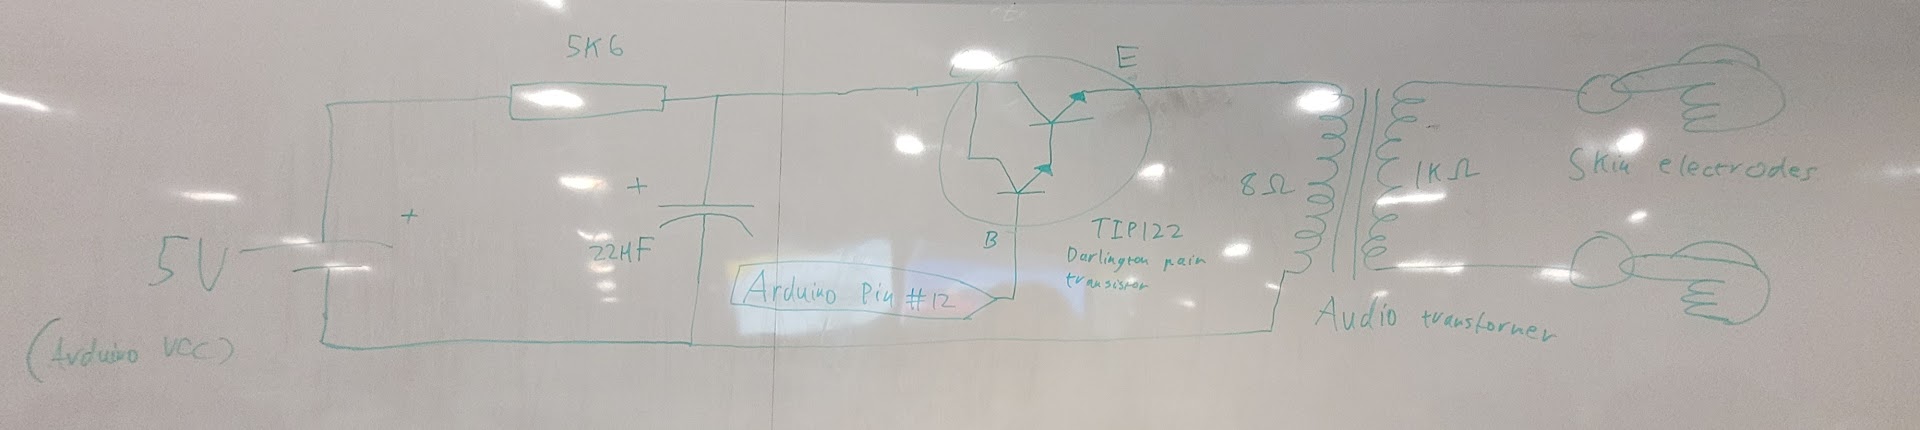 5K6
E
+
+
5V
22µF
B
TIP122
Darlington pain
transistor
8Ω
1KΩ
Skin electrodes
Arduino Pin #12
Audio transformer
(Arduino VCC)